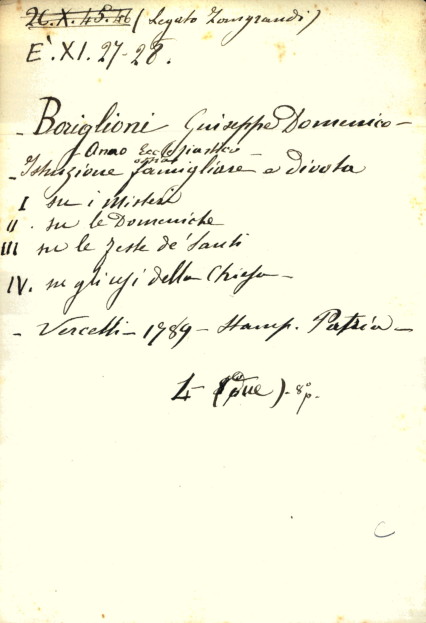 26.X.45.46 (Legato Zongrandi)
E'.XI.27-28.
- Boriglioni Giuseppe Domenico -
- Anno Ecclesiastico
ossia
- Istruzione famigliare e divota
I su i misteri
II. su le Domeniche
III su le feste de' Santi
IV. su gli usi della Chiesa -
- Vercelli - 1789 - Stamp. Patria -
4 - (due) - 8° p.